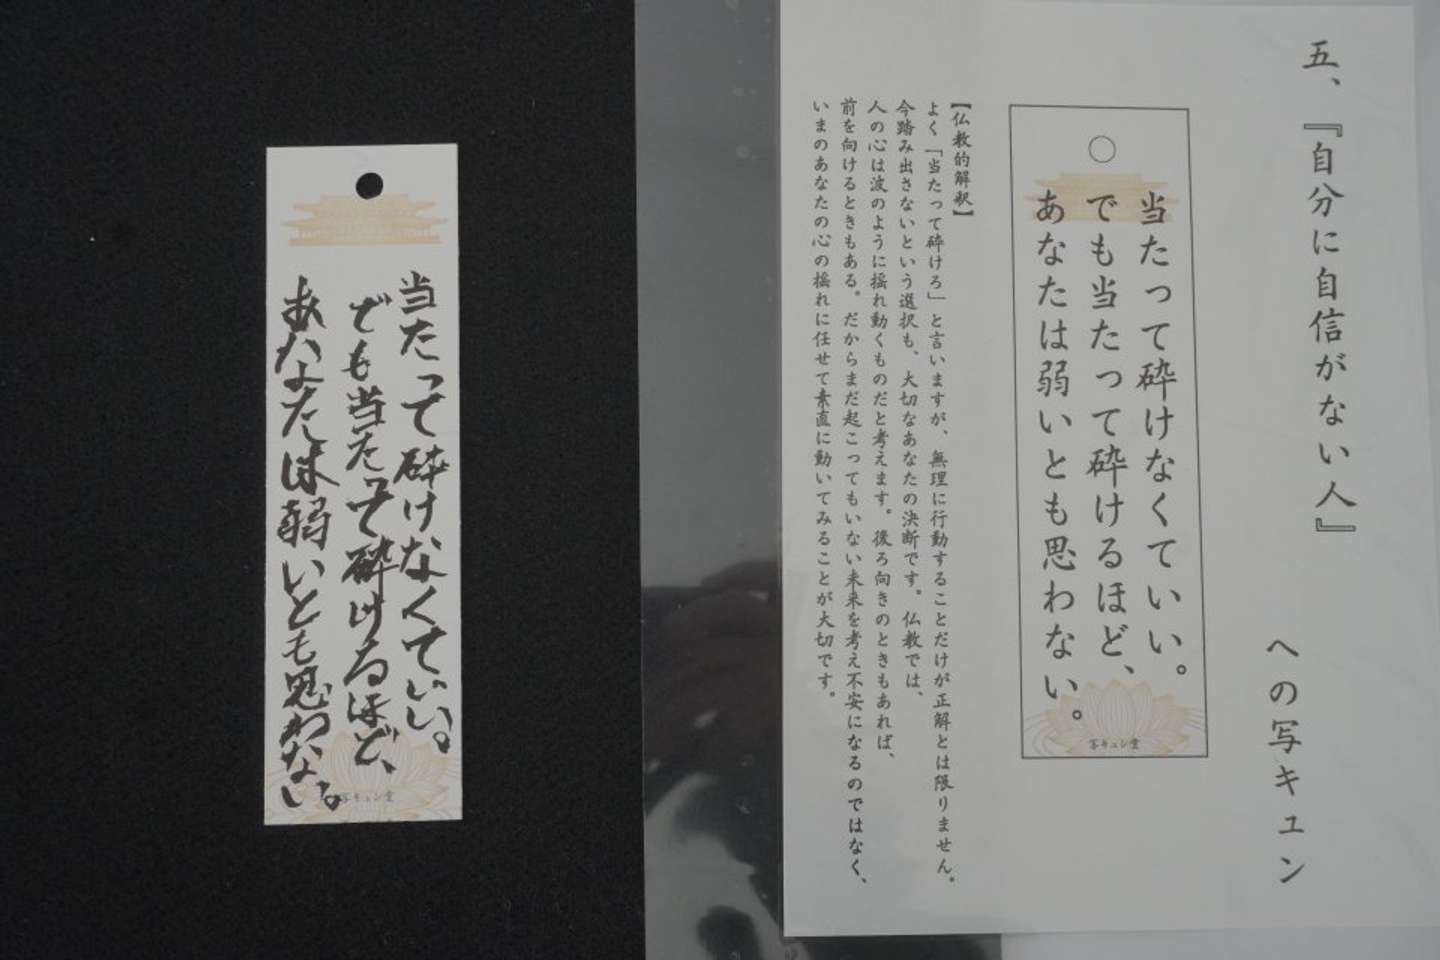 五、『自分に自信がない人』
への写キュン
当たって砕けなくていい。
でも当たって砕けるほど、
あなたは弱いとも思わない。
写キュン堂
【仏教的解釈】
よく「当たって砕けろ」と言いますが、無理に行動することだけが正解とは限りません。
今踏み出さないという選択も、大切なあなたの決断です。仏教では、
人の心は波のように揺れ動くものだと考えます。後ろ向きのときもあれば、
前を向けるときもある。だからまだ起こってもいない未来を考え不安になるのではなく、
いまのあなたの心の揺れに任せて素直に動いてみることが大切です。
当たって砕けなくていい。
でも当たって砕けるほど、
あなたは弱いとも思わない。
写キュン堂